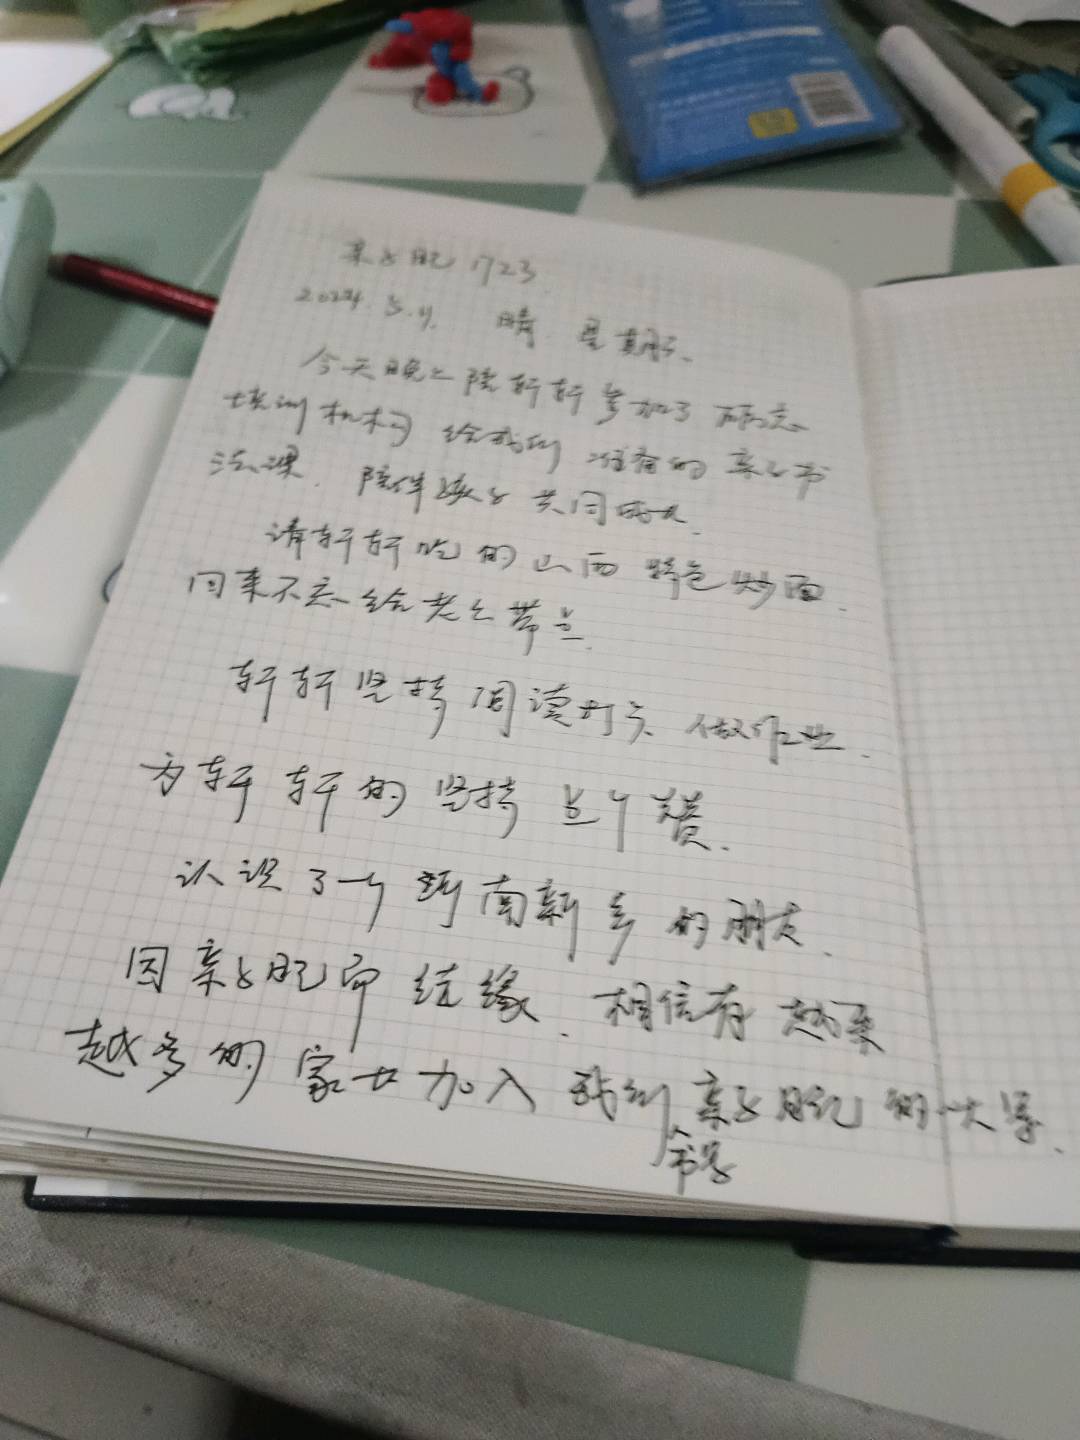 亲子日记 1723.
2024.5.11. 晴 星期六.
今天晚上陪轩轩参加了硕志
培训机构给我们准备的亲子书
法课. 陪伴孩子共同成长.
请轩轩吃的山西特色炒面.
回来不忘给老公带点.
轩轩坚持阅读打卡 做作业.
为轩轩的坚持点个赞.
认识了一个河南新乡的朋友.
因亲子日记而结缘. 相信有越来
越多的家长加入我们亲子日记的大军.
书写